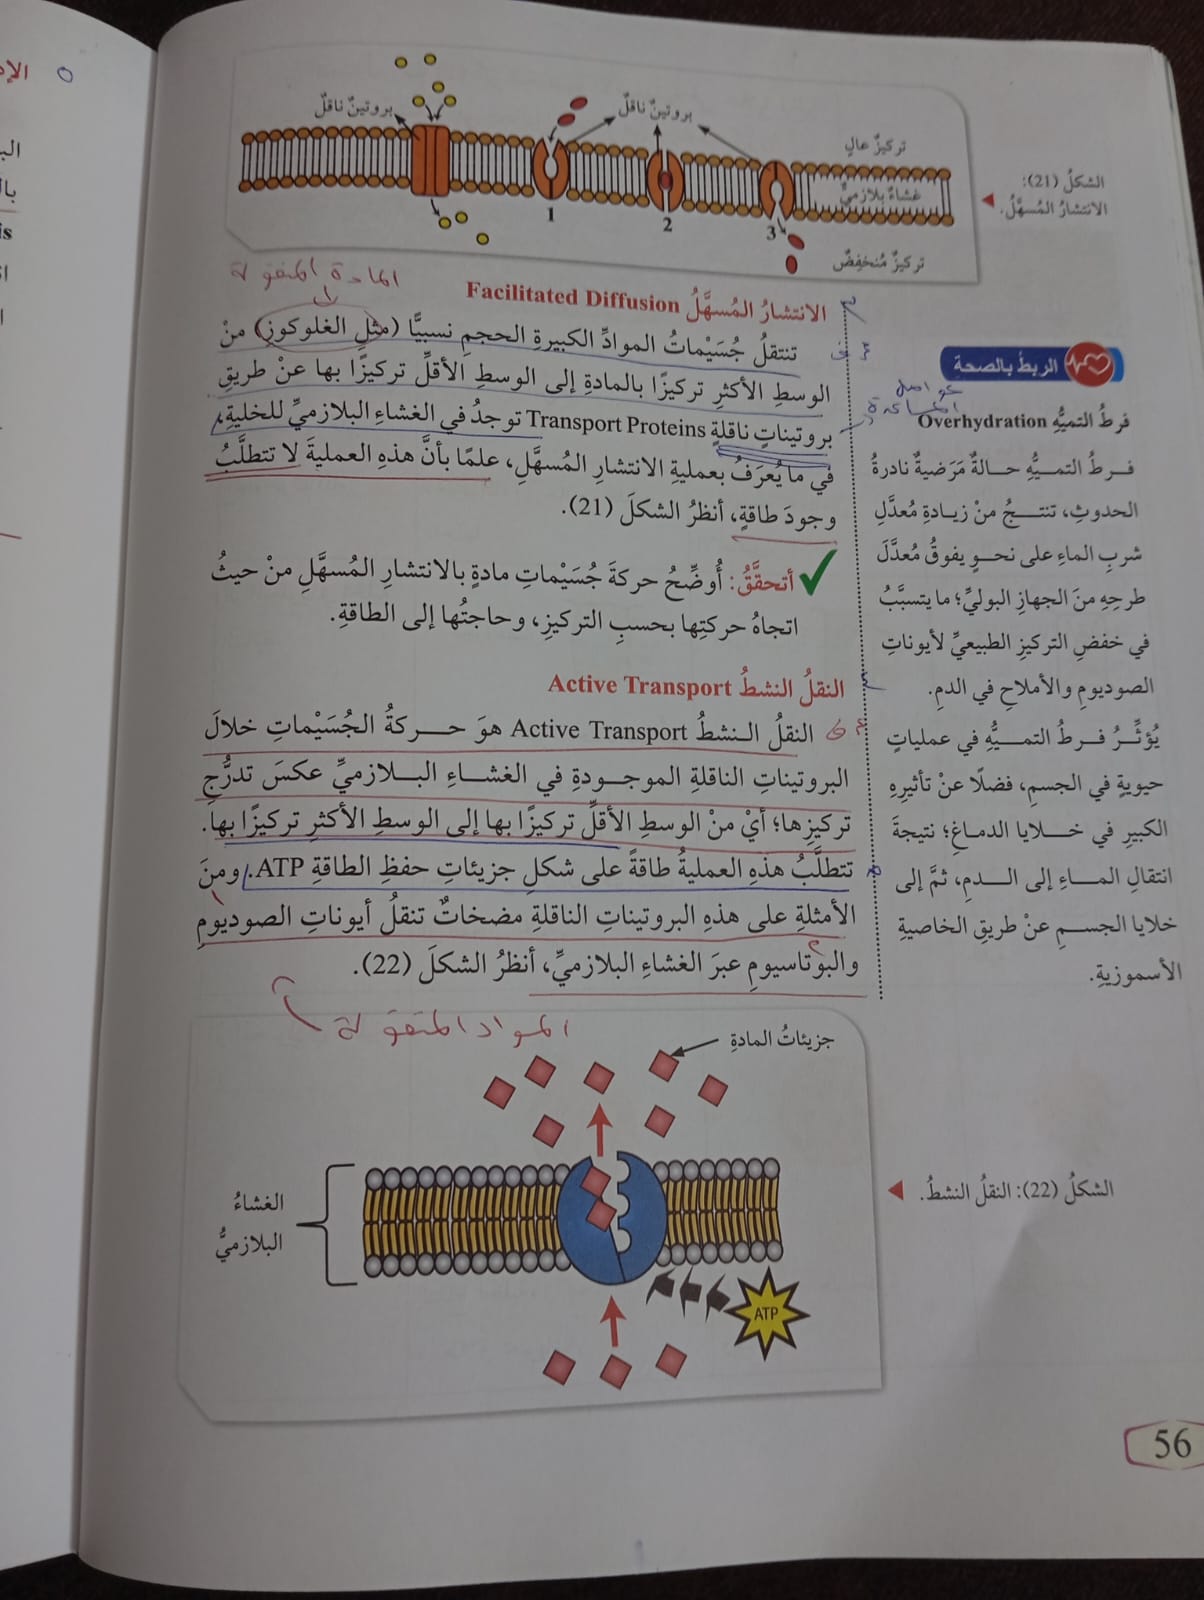 بروتينٌ ناقلٌ
بروتينٌ ناقلٌ
تركيزٌ عالٍ
غشاءٌ بلازميٌّ
1
2
3
تركيزٌ مُنخفِضٌ
الشكلُ (21):
الانتشارُ المُسهَّلُ.
المادة المنقولة
الانتشارُ المُسهَّلُ Facilitated Diffusion
تنتقلُ جُسَيْماتُ الموادِّ الكبيرةِ الحجمِ نسبيًّا (مثلِ الغلوكوزِ) منْ
الوسطِ الأكثرِ تركيزًا بالمادةِ إلى الوسطِ الأقلِّ تركيزًا بها عنْ طريقِ
بروتيناتٍ ناقلةٍ Transport Proteins توجدُ في الغشاءِ البلازميِّ للخليةِ،
في ما يُعرَفُ بعمليةِ الانتشارِ المُسهَّلِ، علمًا بأنَّ هذهِ العمليةَ لا تتطلَّبُ
وجودَ طاقةٍ، أنظرُ الشكلَ (21).
أتحقَّقُ: أُوضِّحُ حركةَ جُسَيْماتِ مادةٍ بالانتشارِ المُسهَّلِ منْ حيثُ
اتجاهُ حركتِها بحسبِ التركيزِ، وحاجتُها إلى الطاقةِ.
النقلُ النشطُ Active Transport
النقلُ النشطُ Active Transport هوَ حركةُ الجُسَيْماتِ خلالَ
البروتيناتِ الناقلةِ الموجودةِ في الغشاءِ البلازميِّ عكسَ تدرُّجِ
تركيزِها؛ أيْ منَ الوسطِ الأقلِّ تركيزًا بها إلى الوسطِ الأكثرِ تركيزًا بها.
تتطلَّبُ هذهِ العمليةُ طاقةً على شكلِ جزيئاتِ حفظِ الطاقةِ ATP. ومنَ
الأمثلةِ على هذهِ البروتيناتِ الناقلةِ مضخاتٌ تنقلُ أيوناتِ الصوديومِ
والبوتاسيومِ عبرَ الغشاءِ البلازميِّ، أنظرُ الشكلَ (22).
المواد المنقولة
الربطُ بالصحة
فرطُ التميُّهِ Overhydration
فرطُ التميُّهِ حالةٌ مَرَضيةٌ نادرةُ
الحدوثِ، تنتجُ منْ زيادةِ مُعدَّلِ
شربِ الماءِ على نحوٍ يفوقُ مُعدَّلَ
طرحِهِ منَ الجهازِ البوليِّ؛ ما يتسبَّبُ
في خفضِ التركيزِ الطبيعيِّ لأيوناتِ
الصوديومِ والأملاحِ في الدمِ.
يُؤثِّرُ فرطُ التميُّهِ في عملياتٍ
حيويةٍ في الجسمِ، فضلًا عنْ تأثيرِهِ
الكبيرِ في خلايا الدماغِ؛ نتيجةَ
انتقالِ الماءِ إلى الدمِ، ثمَّ إلى
خلايا الجسمِ عنْ طريقِ الخاصيةِ
الأسموزيةِ.
جزيئاتُ المادةِ
الغشاءُ
البلازميُّ
ATP
الشكلُ (22): النقلُ النشطُ.
56